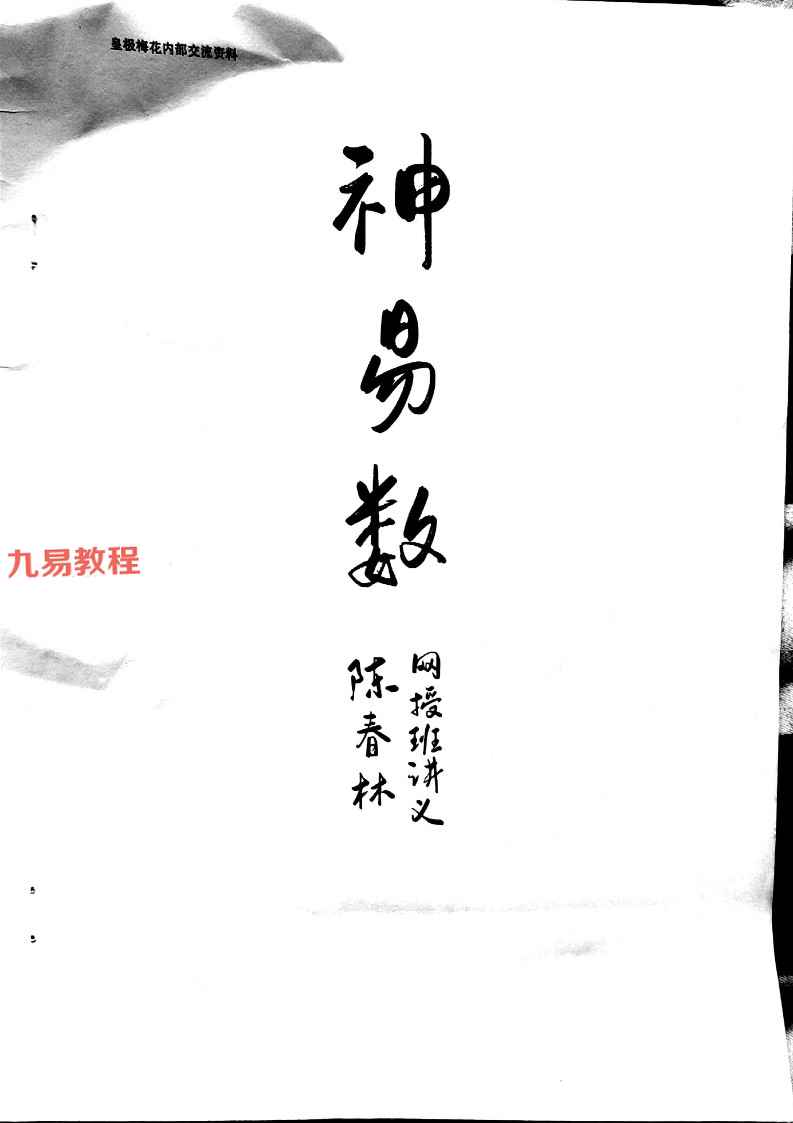 皇极梅花内部交流资料
神易数
九易教程
网授班讲义
陈春林